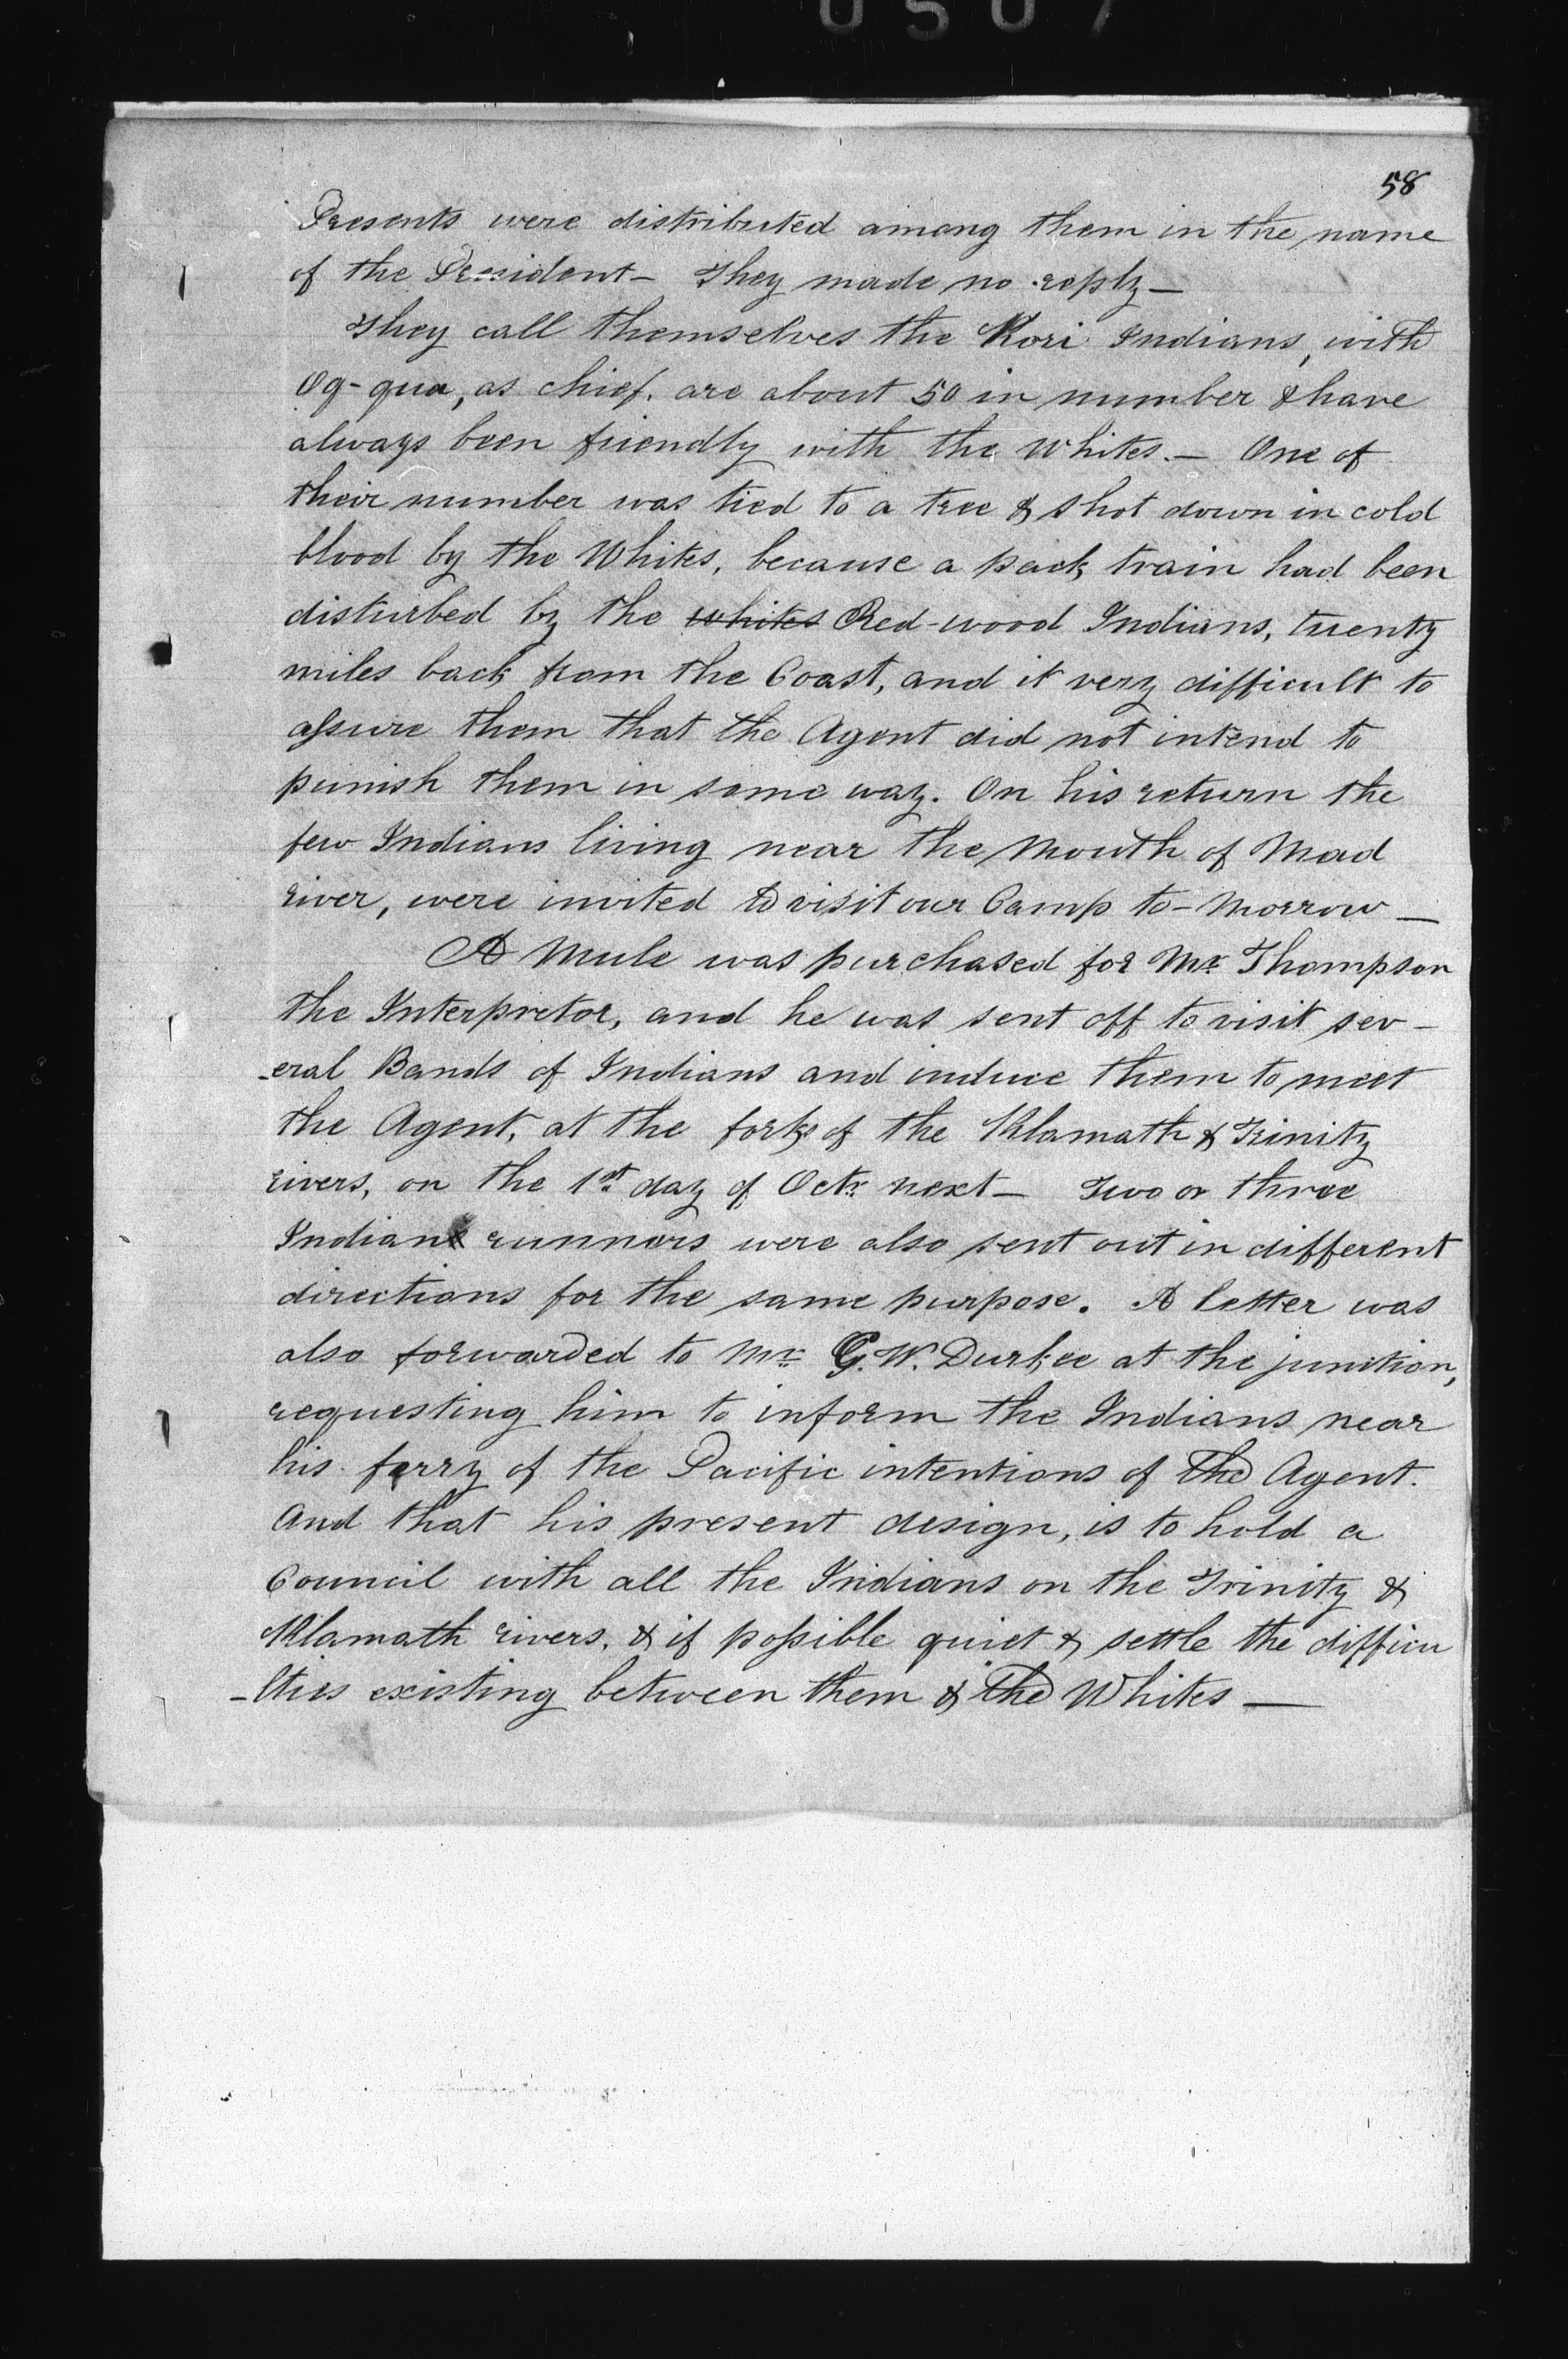 0507
58
Presents were distributed among them in the name
of the President — They made no reply —
They call themselves the Kori Indians, with
Og-qua, as chief. are about 50 in number & have
always been friendly with the Whites. — One of
their number was tied to a tree & shot down in cold
blood by the Whites, because a pack train had been
disturbed by the whites Red-wood Indians, twenty
miles back from the Coast, and it very difficult to
assure them that the Agent did not intend to
punish them in some way. On his return the
few Indians living near the Mouth of Mad
river, were invited to visit our Camp to-morrow —
A Mule was purchased for Mr. Thompson
the Interpretor, and he was sent off to visit sev-
-eral Bands of Indians and induce them to meet
the Agent, at the forks of the Klamath & Trinity
rivers, on the 1st day of Octr. next — Two or three
Indian runners were also sent out in different
directions for the same purpose. A letter was
also forwarded to Mr. G. W. Durkee at the junction,
requesting him to inform the Indians near
his ferry of the Pacific intentions of the Agent.
And that his present design, is to hold a
Council with all the Indians on the Trinity &
Klamath rivers, & if possible quiet & settle the difficu
-lties existing between them & the Whites —